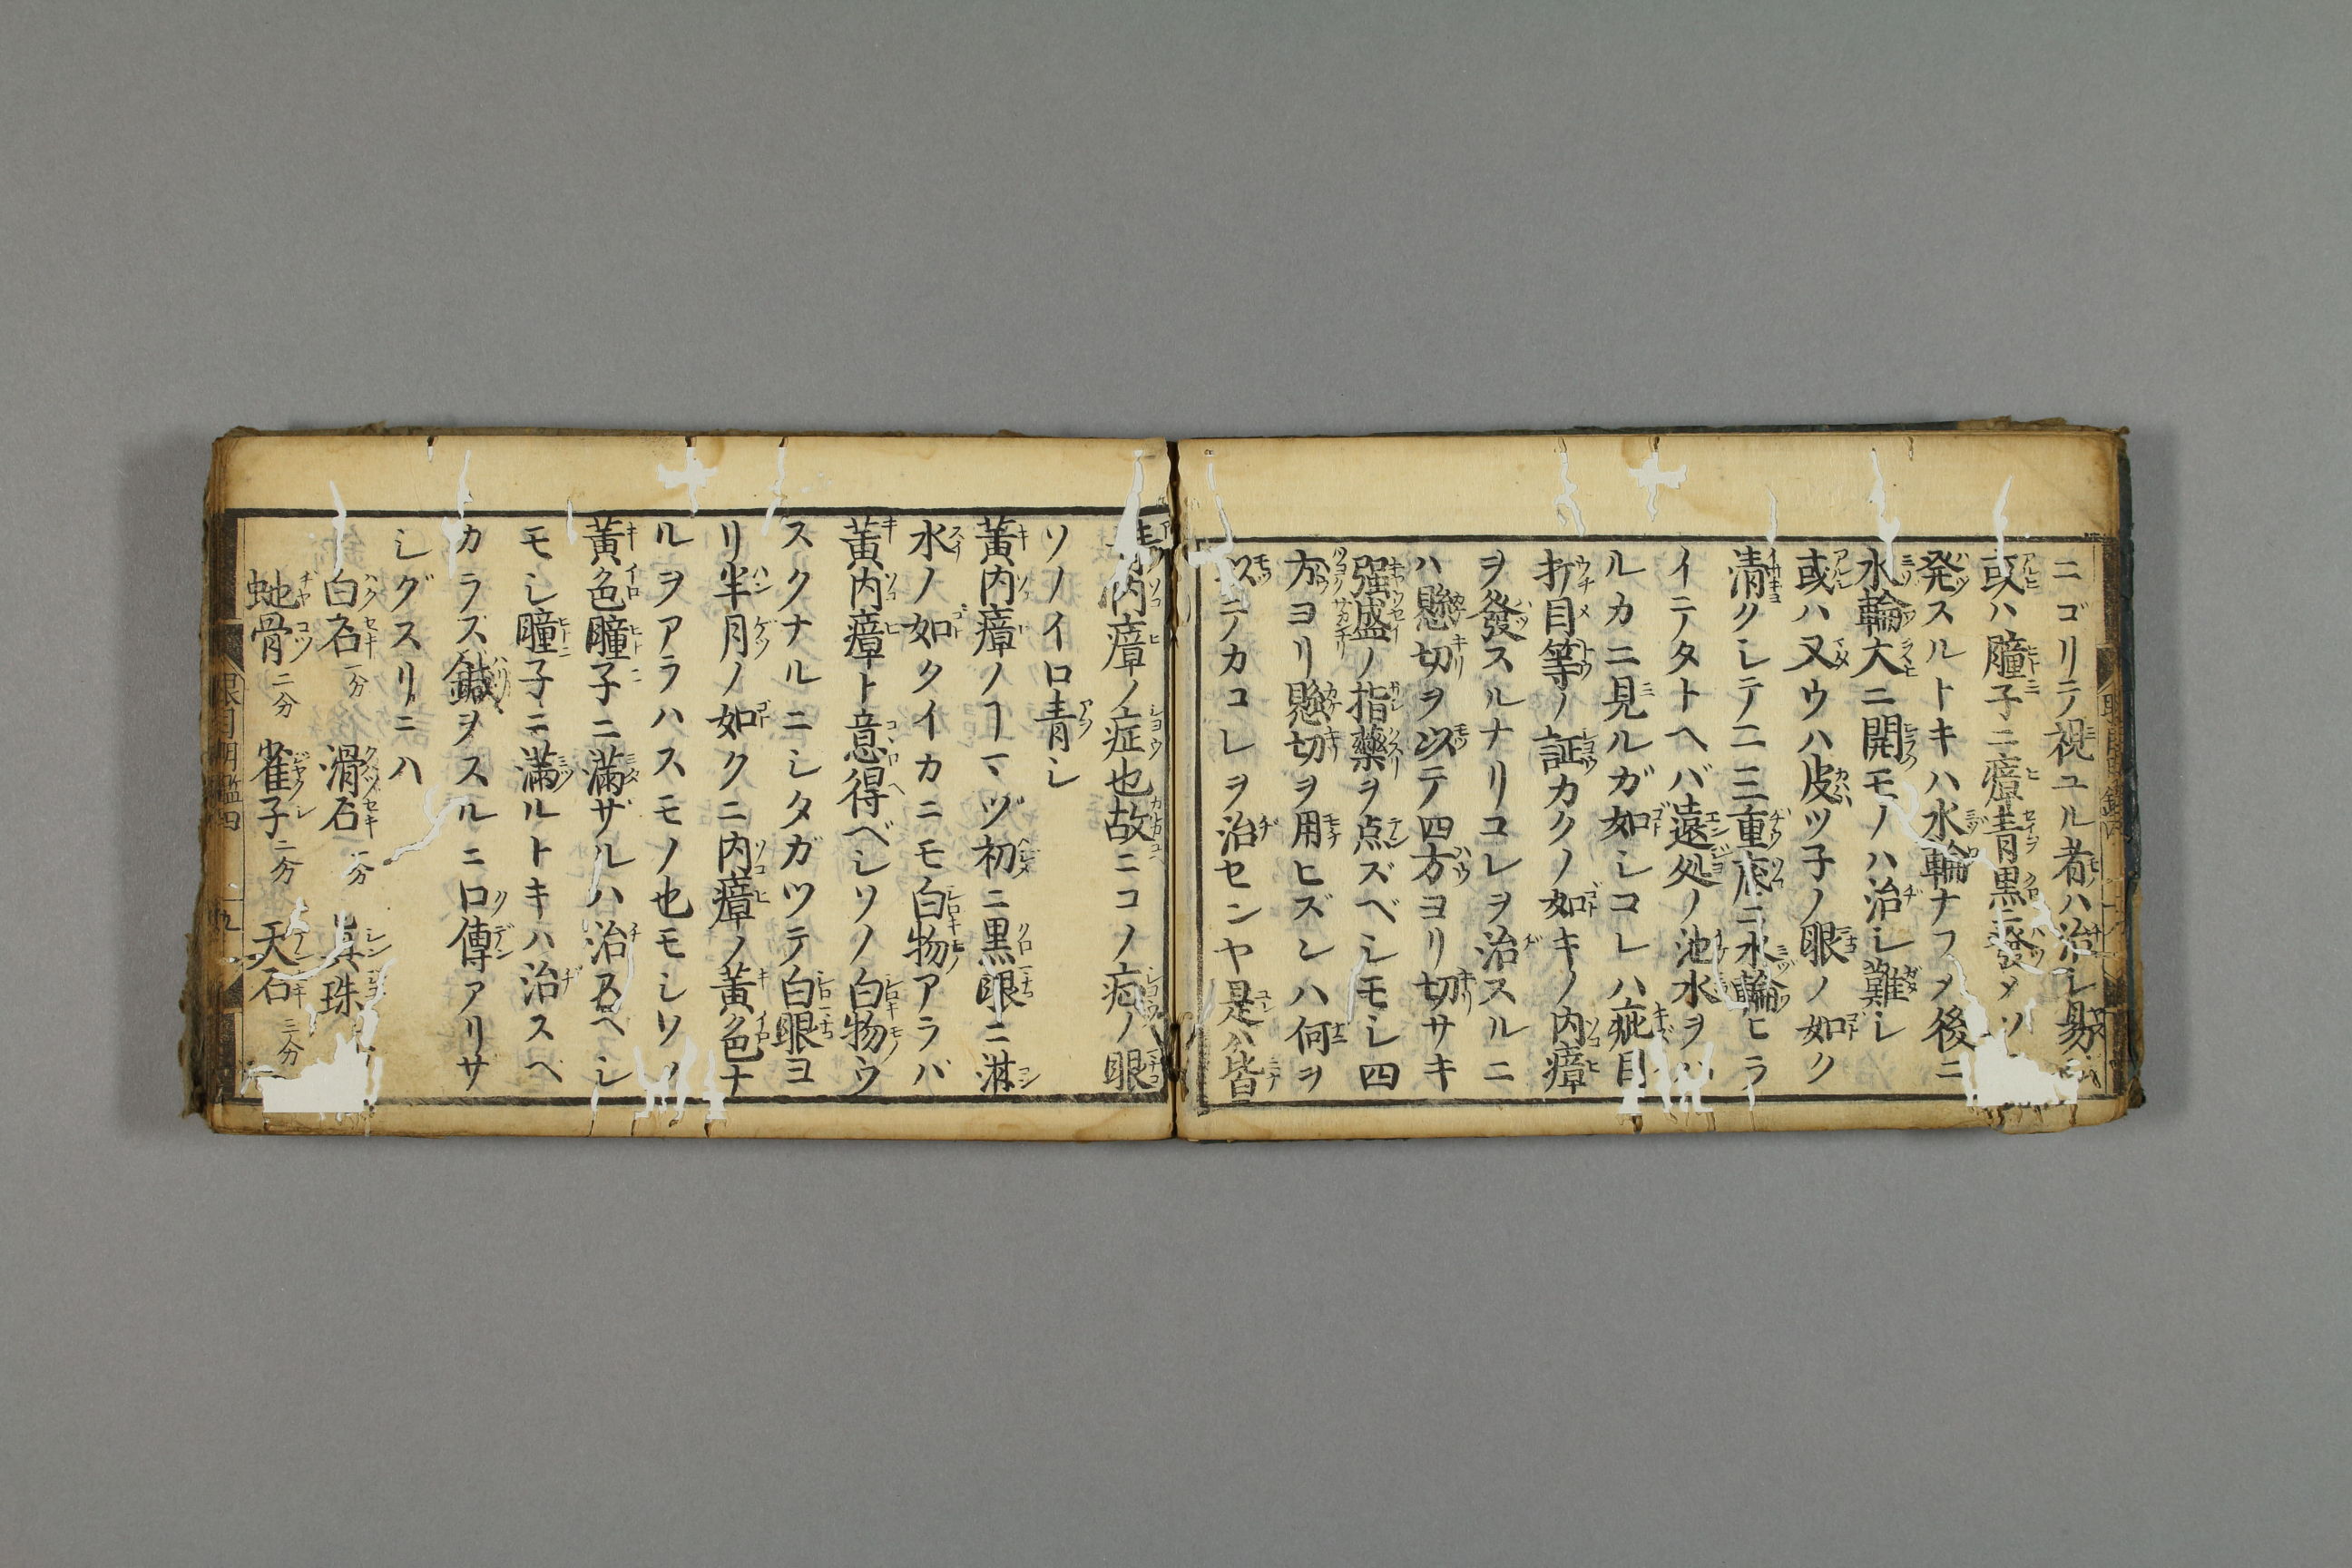 ニゴリテ視ユル者ハ治シ易
或ハ瞳子ニ瘴青黒ニ發メソ
発スルトキハ水輪ナフメ後ニ
水輪大ニ開モノハ治シ難シ
或ハ又ウハ皮ツ子ノ眼ノ如ク
清クシテ二三重底ニ水輪ヒラ
イテタトヘバ遠処ノ池水ヲ
ルカニ見ルガ如シコレハ疵目
打目等ノ証カクノ如キノ内瘴
ヲ發スルナリコレヲ治スルニ
ハ懸切ヲ以テ四方ヨリ切サキ
强盛ノ指藥ヲ点ズベシモシ四
方ヨリ懸切ヲ用ヒズンハ何ヲ
以テカコレヲ治センヤ是ハ皆
内瘴ノ症也故ニコノ病ノ眼
ソノイロ青シ
黄内瘴ノ㆒マヅ初ニ黒眼ニ淋
水ノ如クイカニモ白物アラバ
黄内瘴ト意得ベシソノ白物ウ
スクナルニシタガツテ白眼ヨ
リ半月ノ如クニ内瘴ノ黄色ナ
ルヲアラハスモノ也モシソノ
黄色瞳子ニ満ザルハ治スベシ
モシ瞳子ニ満ルトキハ治スベ
カラズ鍼ヲスルニ口傳アリサ
シグスリニハ
白石一分 滑石一分 真珠
虵骨二分 雀子二分 天石三分